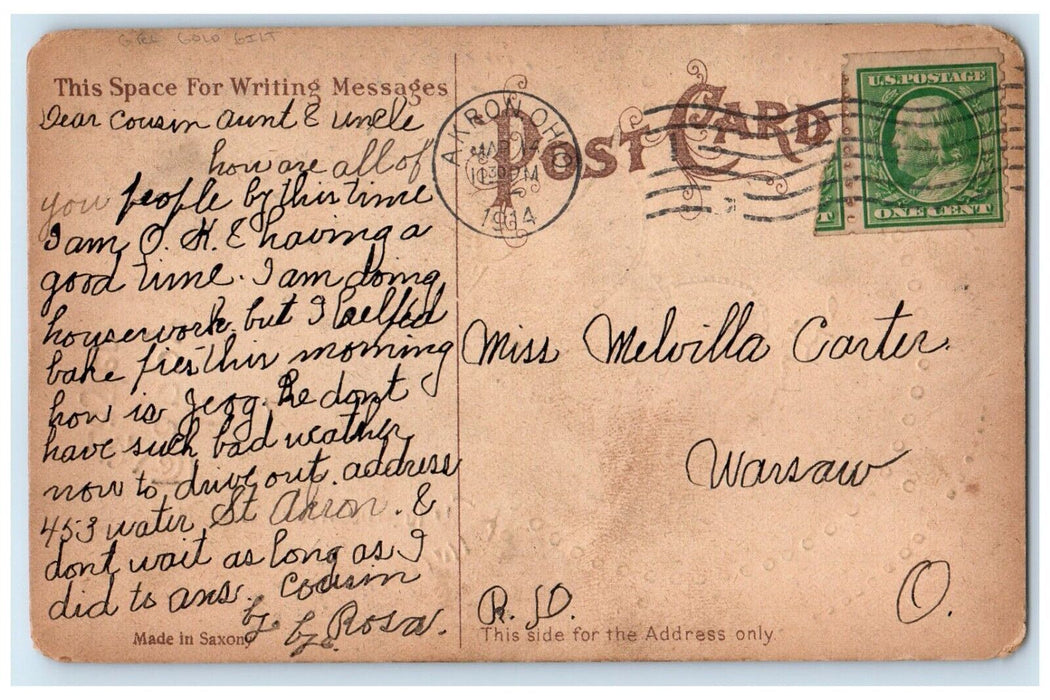 GEL GOLD GILT
This Space For Writing Messages
Dear Cousin Aunt & Uncle
how are all of
you people by this time
I am O. K. & having a
good time. I am doing
housework but I helped
bake pies this morning
how is Jeog. he dont
have such bad weather
now to drive out. address
453 water St Akron. &
dont wait as long as I
did to ans. Cousin
by. by. Rosa.
Made in Saxony
POST CARD
AKRON, OHIO
MAR 14
1914
U.S. POSTAGE
ONE CENT
Miss Melvilla Carter.
Warsaw
R. D. O.
This side for the Address only